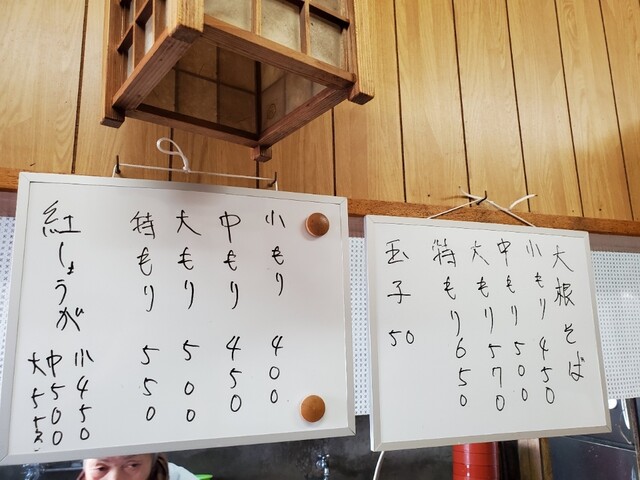 小もり 400
中もり 450
大もり 500
特もり 550
紅しょうが
小 450
中 500
大 550
大根そば
小もり 450
中もり 500
大もり 570
特もり 650
玉子 50